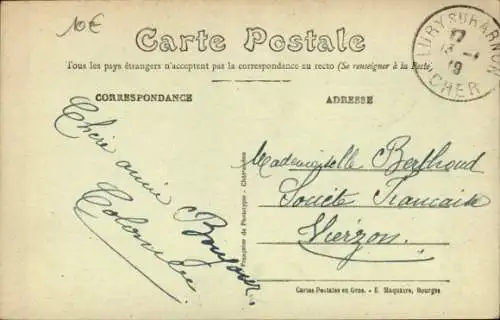 10€
Carte Postale
Tous les pays étrangers n'acceptent pas la correspondance au recto (Se renseigner à la Poste)
CORRESPONDANCE
ADRESSE
LURY SUR ARNON
17
19
CHER
Chère amie
Bonjour
Mademoiselle Berthoud
Societe Francaise
Vierzon.
Française de Phototypie - Châteaudun
Cartes Postales en Gros. - E. Maquaire, Bourges